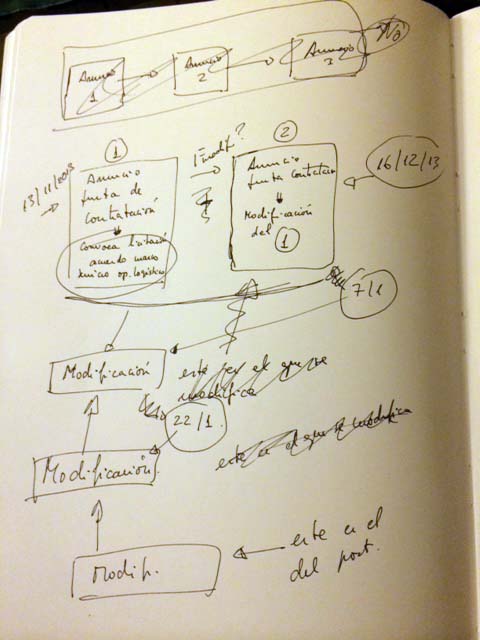 Anuncio
1
Anuncio
2
Anuncio
3
No
1
2
13/11/2013
Anuncio
Junta de
Contratación
Convoca licitación
acuerdo marco
único op. logístico
1ª modif?
Anuncio
Junta Contratación
Modificación
del 1
16/12/13
7/1
Modificación
este es el que se
modifica
22/1
Modificación
este es el que se modifica
Modif.
este es el
del post.